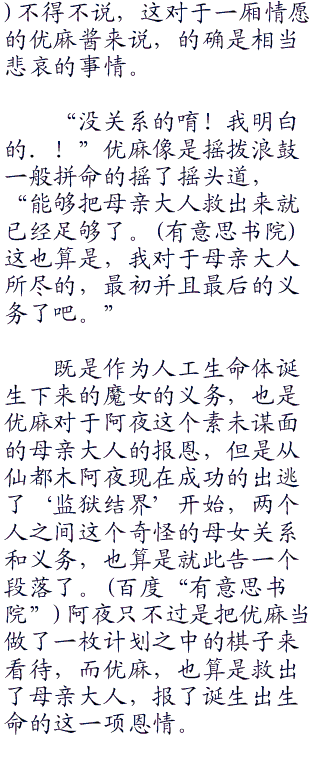 )不得不说，这对于一厢情愿
的优麻酱来说，的确是相当
悲哀的事情。
“没关系的唷！我明白
的．！”优麻像是摇拨浪鼓
一般拼命的摇了摇头道，
“能够把母亲大人救出来就
已经足够了。(有意思书院)
这也算是，我对于母亲大人
所尽的，最初并且最后的义
务了吧。”
既是作为人工生命体诞
生下来的魔女的义务，也是
优麻对于阿夜这个素未谋面
的母亲大人的报恩，但是从
仙都木阿夜现在成功的出逃
了‘监狱结界’开始，两个
人之间这个奇怪的母女关系
和义务，也算是就此告一个
段落了。(百度“有意思书
院”)阿夜只不过是把优麻当
做了一枚计划之中的棋子来
看待，而优麻，也算是救出
了母亲大人，报了诞生出生
命的这一项恩情。